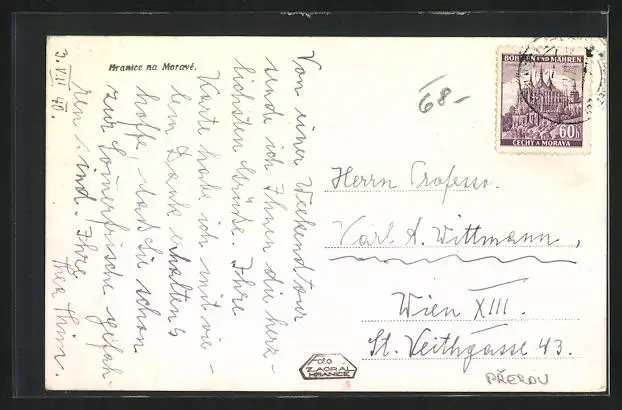 Hranice na Moravě.
3. VII 40.
Von einer Weekendtour
sende ich Ihnen die herz-
lichsten Grüße. Ihre
Karte habe ich mit vie-
lem Dank erhalten &
hoffe, daß Sie schon
zur Sommerfrische gefah-
ren sind. Ihre
Thea Thim.
68-
BÖHMEN UND MÄHREN
60h
ČECHY A MORAVA
Herrn Professor
Karl A. Wittmann,
Wien XIII.
St. Veithgasse 43.
PŘEROV
Foto
ZAORAL
HRANICE